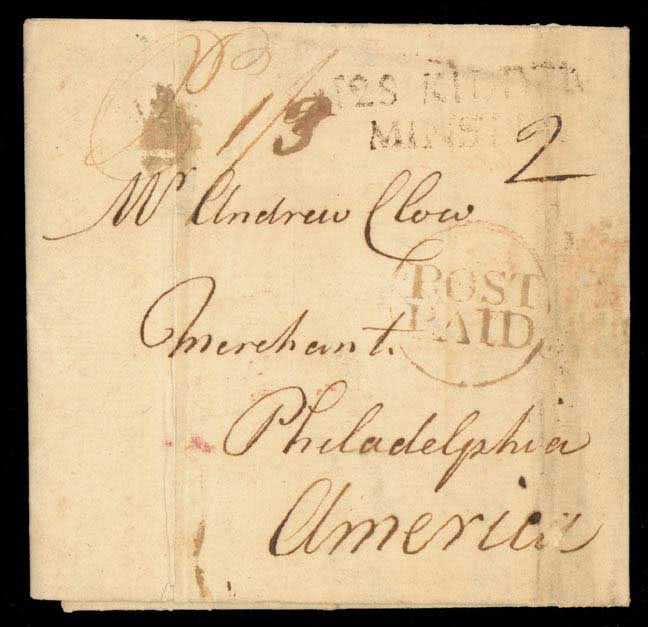 1/3
128 KIDDER
MINSTER
2
Mr Andrew Clow
POST
PAID
Merchant.
Philadelphia
America